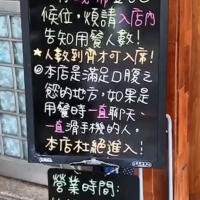 候位，煩請入店內
告知用餐人數！
★人數到齊才可入席！
◎本店是滿足口腹之
慾的地方，如果是
用餐時一直聊天、
一直滑手機的人，
本店杜絕進入！
營業時間：